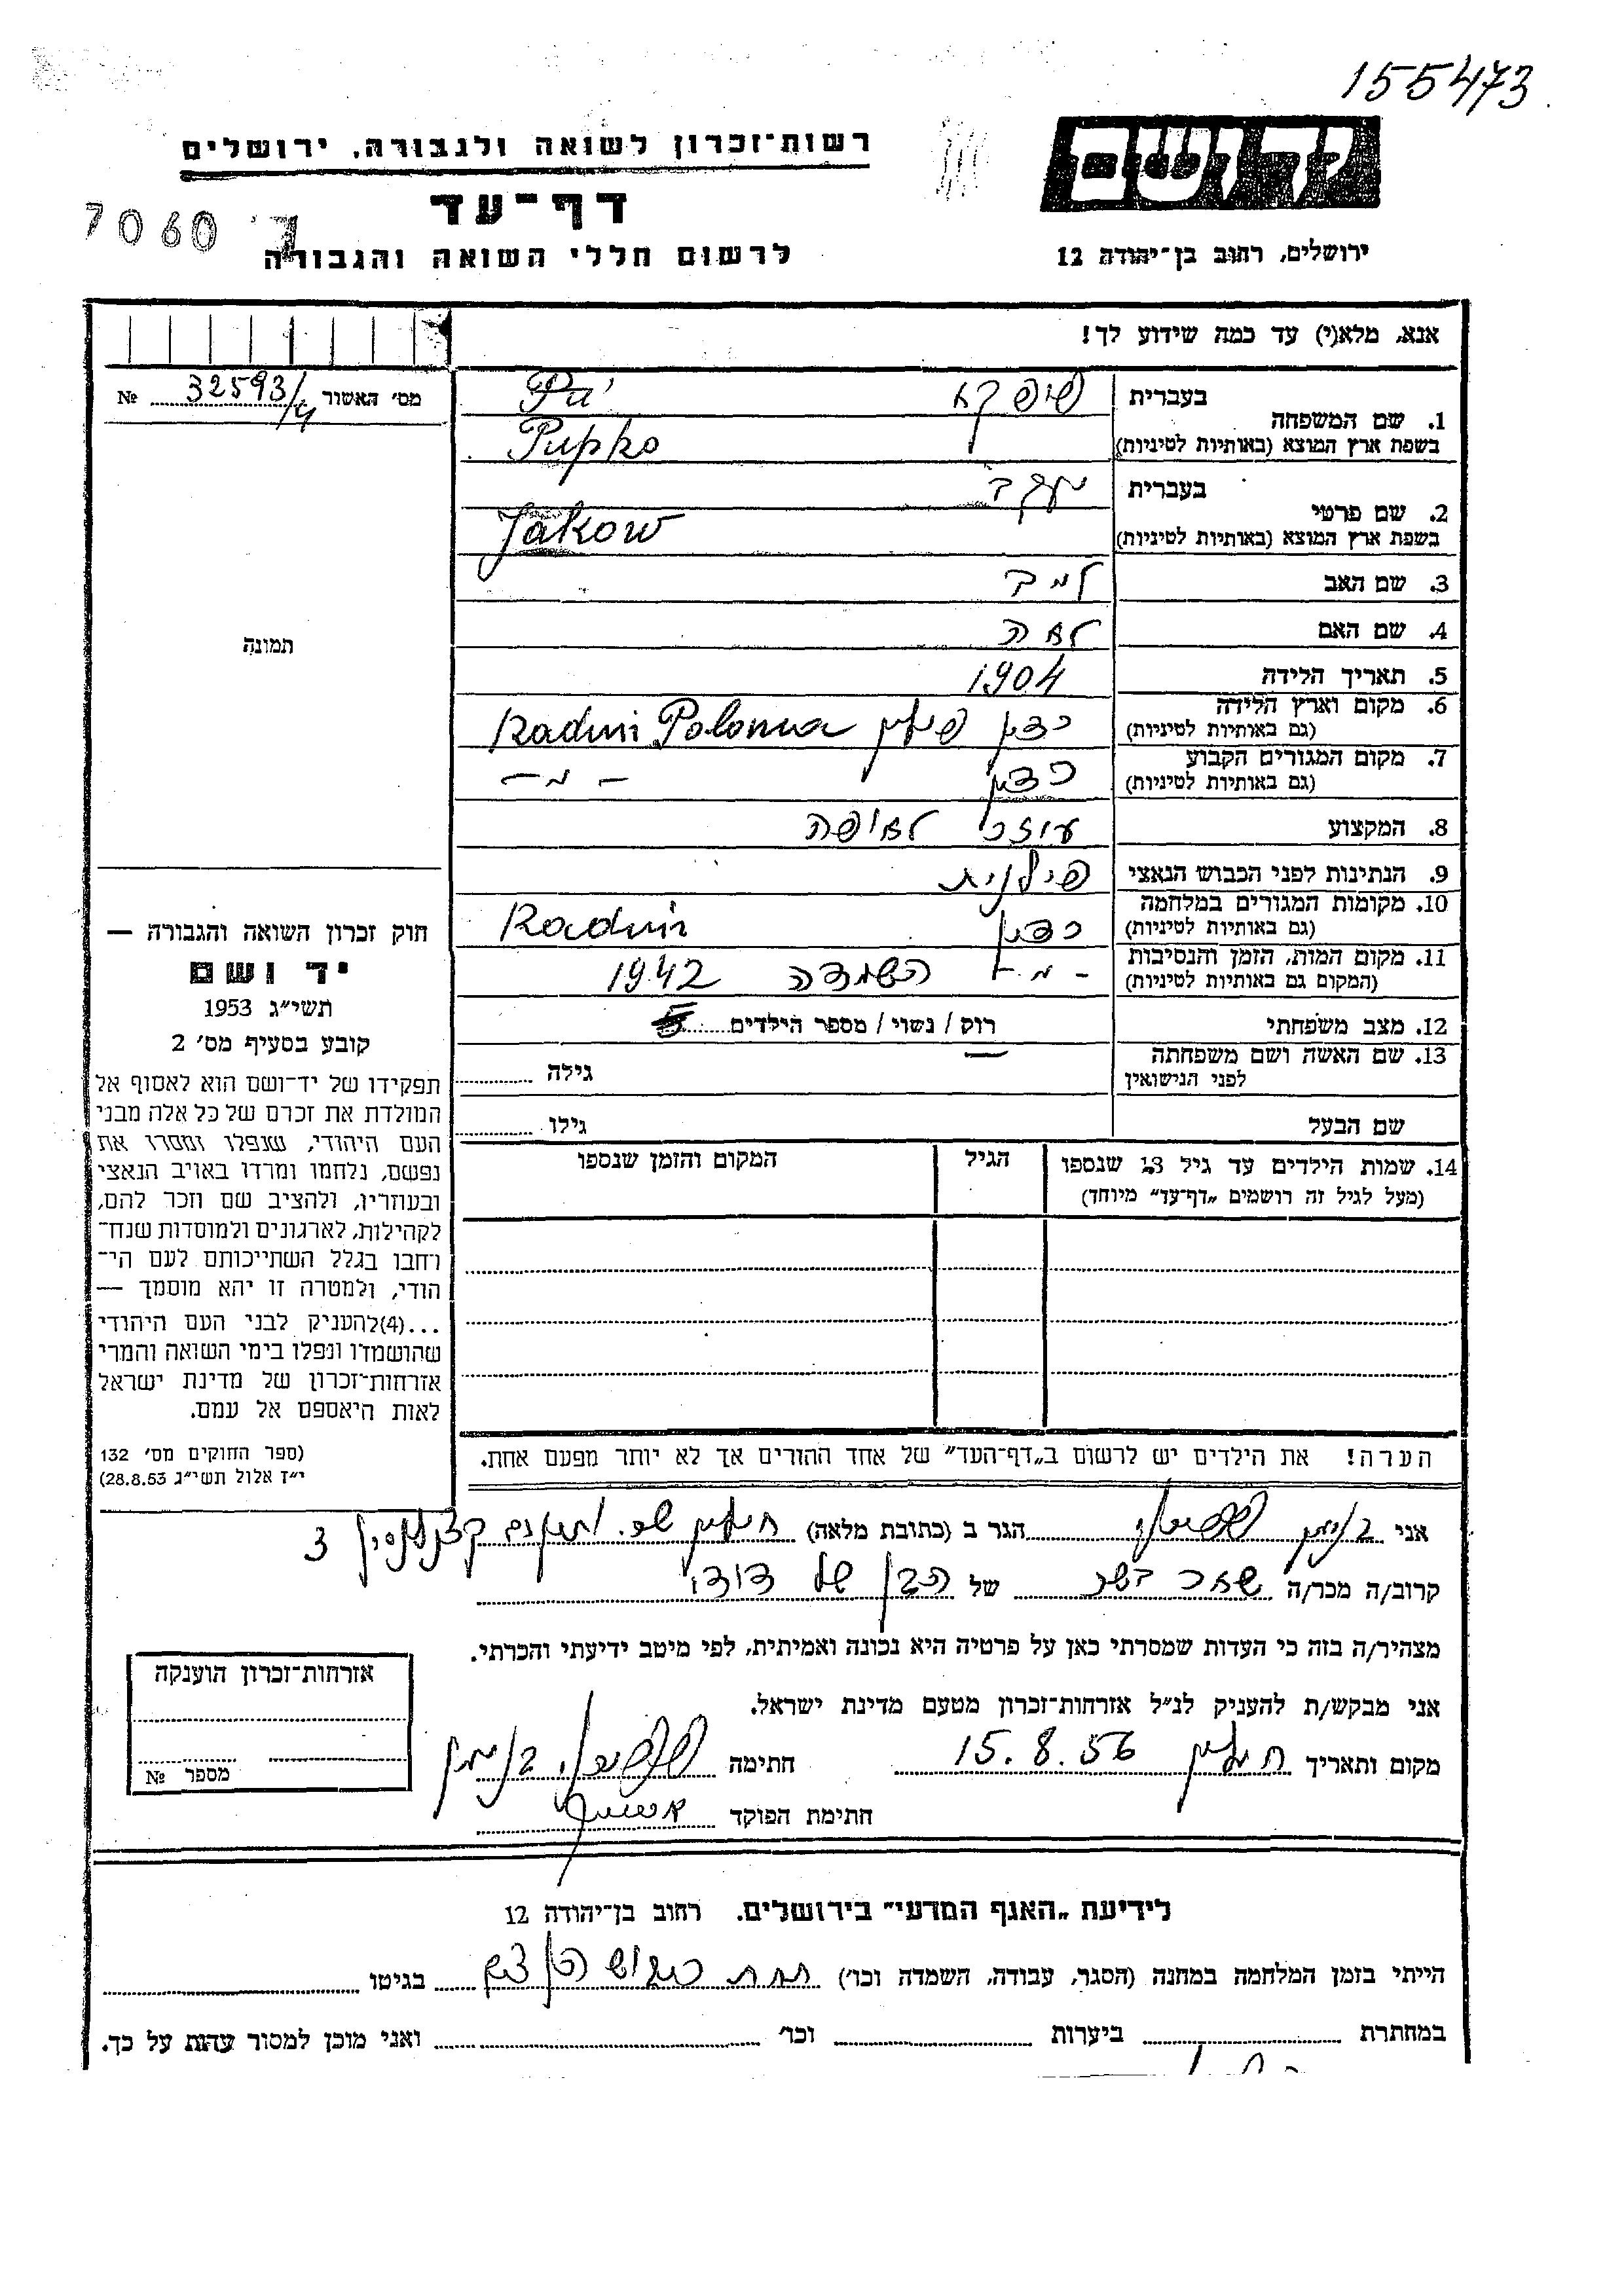 155473
יד ושם
רשות־זכרון לשואה ולגבורה, ירושלים
דף־עד
7060
לרשום חללי השואה והגבורה
ירושלים, רחוב בן־יהודה 12
אנא, מלא(י) עד כמה שידוע לך!
מס׳ האשור 32593/4 №
1. שם המשפחה
בעברית פופקא
Pu
בשפת ארץ המוצא (באותיות לטיניות) Pupko
2. שם פרטי
בעברית יעקב
בשפת ארץ המוצא (באותיות לטיניות) Jakow
3. שם האב
4. שם האם לאה
5. תאריך הלידה 1904
6. מקום וארץ הלידה
(גם באותיות לטיניות) ראדין פולין Raduń Polonia
7. מקום המגורים הקבוע
(גם באותיות לטיניות) ראדין
8. המקצוע עוזר לאופה
9. הנתינות לפני הכבוש הנאצי פולנית
10. מקומות המגורים במלחמה
(גם באותיות לטיניות) ראדין Raduń
11. מקום המות, הזמן והנסיבות
(המקום גם באותיות לטיניות) השמדה 1942
12. מצב משפחתי רוק / נשוי / מספר הילדים
13. שם האשה ושם משפחתה
לפני הנישואין
גילה
שם הבעל
גילו
14. שמות הילדים עד גיל 13 שנספו
(מעל לגיל זה רושמים „דף־עד” מיוחד)
הגיל
המקום והזמן שנספו
הערה! את הילדים יש לרשום ב„דף־העד” של אחד ההורים אך לא יותר מפעם אחת.
תמונה
חוק זכרון השואה והגבורה —
יד ושם
תשי״ג 1953
קובע בסעיף מס׳ 2
תפקידו של יד־ושם הוא לאסוף אל
המולדת את זכרם של כל אלה מבני
העם היהודי, שנפלו ומסרו את
נפשם, נלחמו ומרדו באויב הנאצי
ובעוזריו, ולהציב שם וזכר להם,
לקהילות, לארגונים ולמוסדות שנח־
רחבו בגלל השתייכותם לעם הי־
הודי, ולמטרה זו יהא מוסמך —
...(4)להעניק לבני העם היהודי
שהושמדו ונפלו בימי השואה והמרי
אזרחות־זכרון של מדינת ישראל
לאות היאספם אל עמם.
(ספר החוקים מס׳ 132
י״ז אלול תשי״ג 28.8.53)
אני בנימין הגר ב (כתובת מלאה) 3
קרוב/ה מכר/ה שאר בשר של הבן של דודי
מצהיר/ה בזה כי העדות שמסרתי כאן על פרטיה היא נכונה ואמיתית, לפי מיטב ידיעתי והכרתי.
אני מבקש/ת להעניק לנ״ל אזרחות־זכרון מטעם מדינת ישראל.
מקום ותאריך 15.8.56 חתימה בנימין
חתימת הפוקד
אזרחות־זכרון הוענקה
מספר №
לידיעת „האגף המדעי” בירושלים. רחוב בן־יהודה 12
הייתי בזמן המלחמה במחנה (הסגר, עבודה, השמדה וכו׳) בגיטו
במחתרת ביערות וכו׳ ואני מוכן למסור עדות על כך.